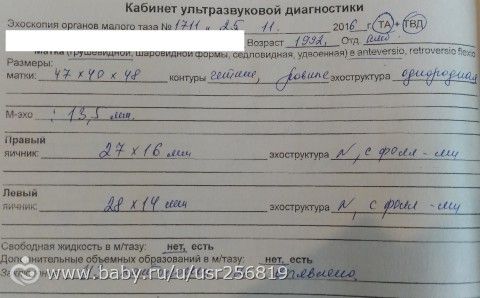 Кабинет ультразвуковой диагностики
Эхоскопия органов малого таза № 1711 " 25 11. 2016 г ТА + ТВД
Возраст 1992, Отд.
Матка (грушевидной, шаровидной формы, седловидная, удвоенная) в anteversio, retroversio flexio
Размеры:
матки: 47 х 40 х 48 контуры четкие, ровные эхоструктура однородная
М-эхо : 13,5 мм.
Правый
яичник: 27 х 16 мм эхоструктура N, с фолл-ми
Левый
яичник: 28 х 14 мм эхоструктура N, с фолл-ми
Свободная жидкость в м/тазу: нет, есть
Дополнительные объемных образований в м/тазу: нет, есть
www.baby.ru/u/usr256819